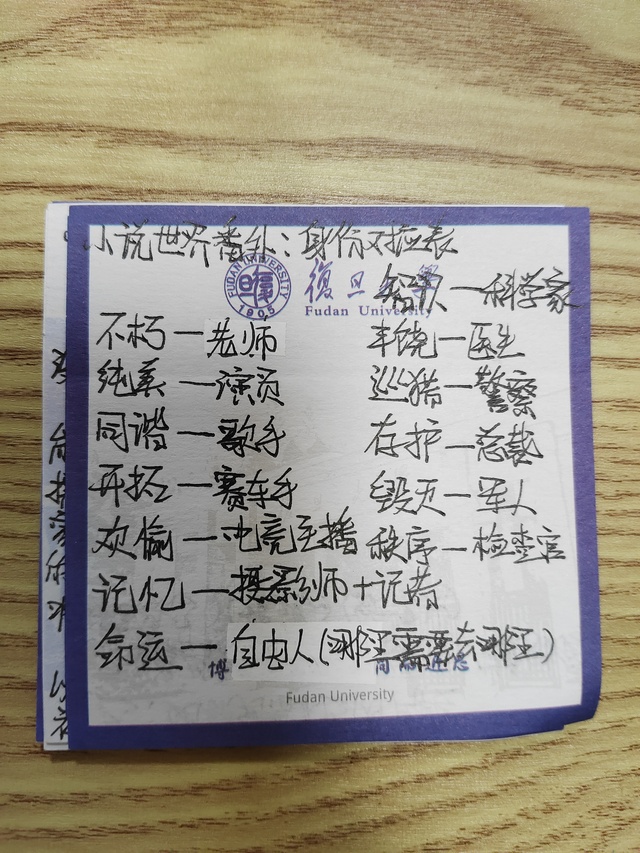 小说世界番外：身份对应表
FUDAN UNIVERSITY
1905
復旦大學
Fudan University
智识一科学家
不朽一老师
丰饶一医生
纯美一演员
巡猎一警察
同谐一歌手
存护一总裁
开拓一赛车手
毁灭一军人
欢愉一电竞主播
秩序一检查官
记忆一摄影师+记者
命运一自由人(哪里需要去哪里)
博
Fudan University